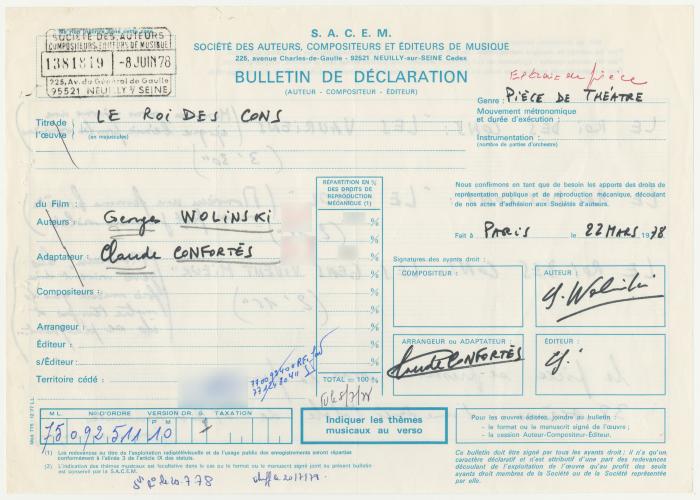 S. A. C. E. M.
SOCIÉTÉ DES AUTEURS, COMPOSITEURS ET ÉDITEURS DE MUSIQUE
225, avenue Charles-de-Gaulle - 92521 NEUILLY-sur-SEINE Cedex
BULLETIN DE DÉCLARATION
(AUTEUR - COMPOSITEUR - ÉDITEUR)
SOCIÉTÉ DES AUTEURS
COMPOSITEURS-ÉDITEURS DE MUSIQUE
1381819 -8 JUIN 78
225, Av. du Général de Gaulle
95521 NEUILLY S/ SEINE
pièce
Genre : PIÈCE DE THÉATRE
Mouvement métronomique
et durée d'exécution :
Instrumentation :
(nombre de parties d'orchestre)
Titre de l'œuvre : LE ROI DES CONS
(en majuscules)
du Film :
Auteurs : Georges WOLINSKI
Adaptateur : Claude CONFORTÈS
Compositeurs :
Arrangeur :
Éditeur :
s/Éditeur :
Territoire cédé :
RÉPARTITION EN %
DES DROITS DE
REPRODUCTION
MÉCANIQUE (1)
%
%
%
%
%
%
%
%
TOTAL = 100 %
Nous confirmons en tant que de besoin les apports des droits de
représentation publique et de reproduction mécanique, découlant
de nos actes d'adhésion aux Sociétés d'auteurs.
Fait à PARIS le 22 MARS 1978
Signatures des ayants droit :
COMPOSITEUR :
AUTEUR :
G. Wolinski
ARRANGEUR OU ADAPTATEUR :
Claude CONFORTÈS
ÉDITEUR :
M L N° D'ORDRE VERSION DR. G. TAXATION
P M
75 0,92,511 1,0
Indiquer les thèmes
musicaux au verso
Pour les œuvres éditées, joindre au bulletin :
- le format ou le manuscrit signé de l'œuvre ;
- la cession Auteur-Compositeur-Éditeur.
(1) Les redevances au titre de l'exploitation radiotélévisuelle et de l'usage public des enregistrements seront réparties
conformément à l'alinéa 3 de l'article IX des statuts.
(2) L'indication des thèmes musicaux est facultative dans le cas où le format ou le manuscrit signé joint au présent bulletin
est conservé par la S.A.C.E.M.
Ce bulletin doit être signé par tous les ayants droit ; il n'a qu'un
caractère déclaratif et n'est attributif d'une part des redevances
découlant de l'exploitation de l'œuvre qu'au profit des seuls
ayants droit membres de la Société ou de la Société représentée
par elle.